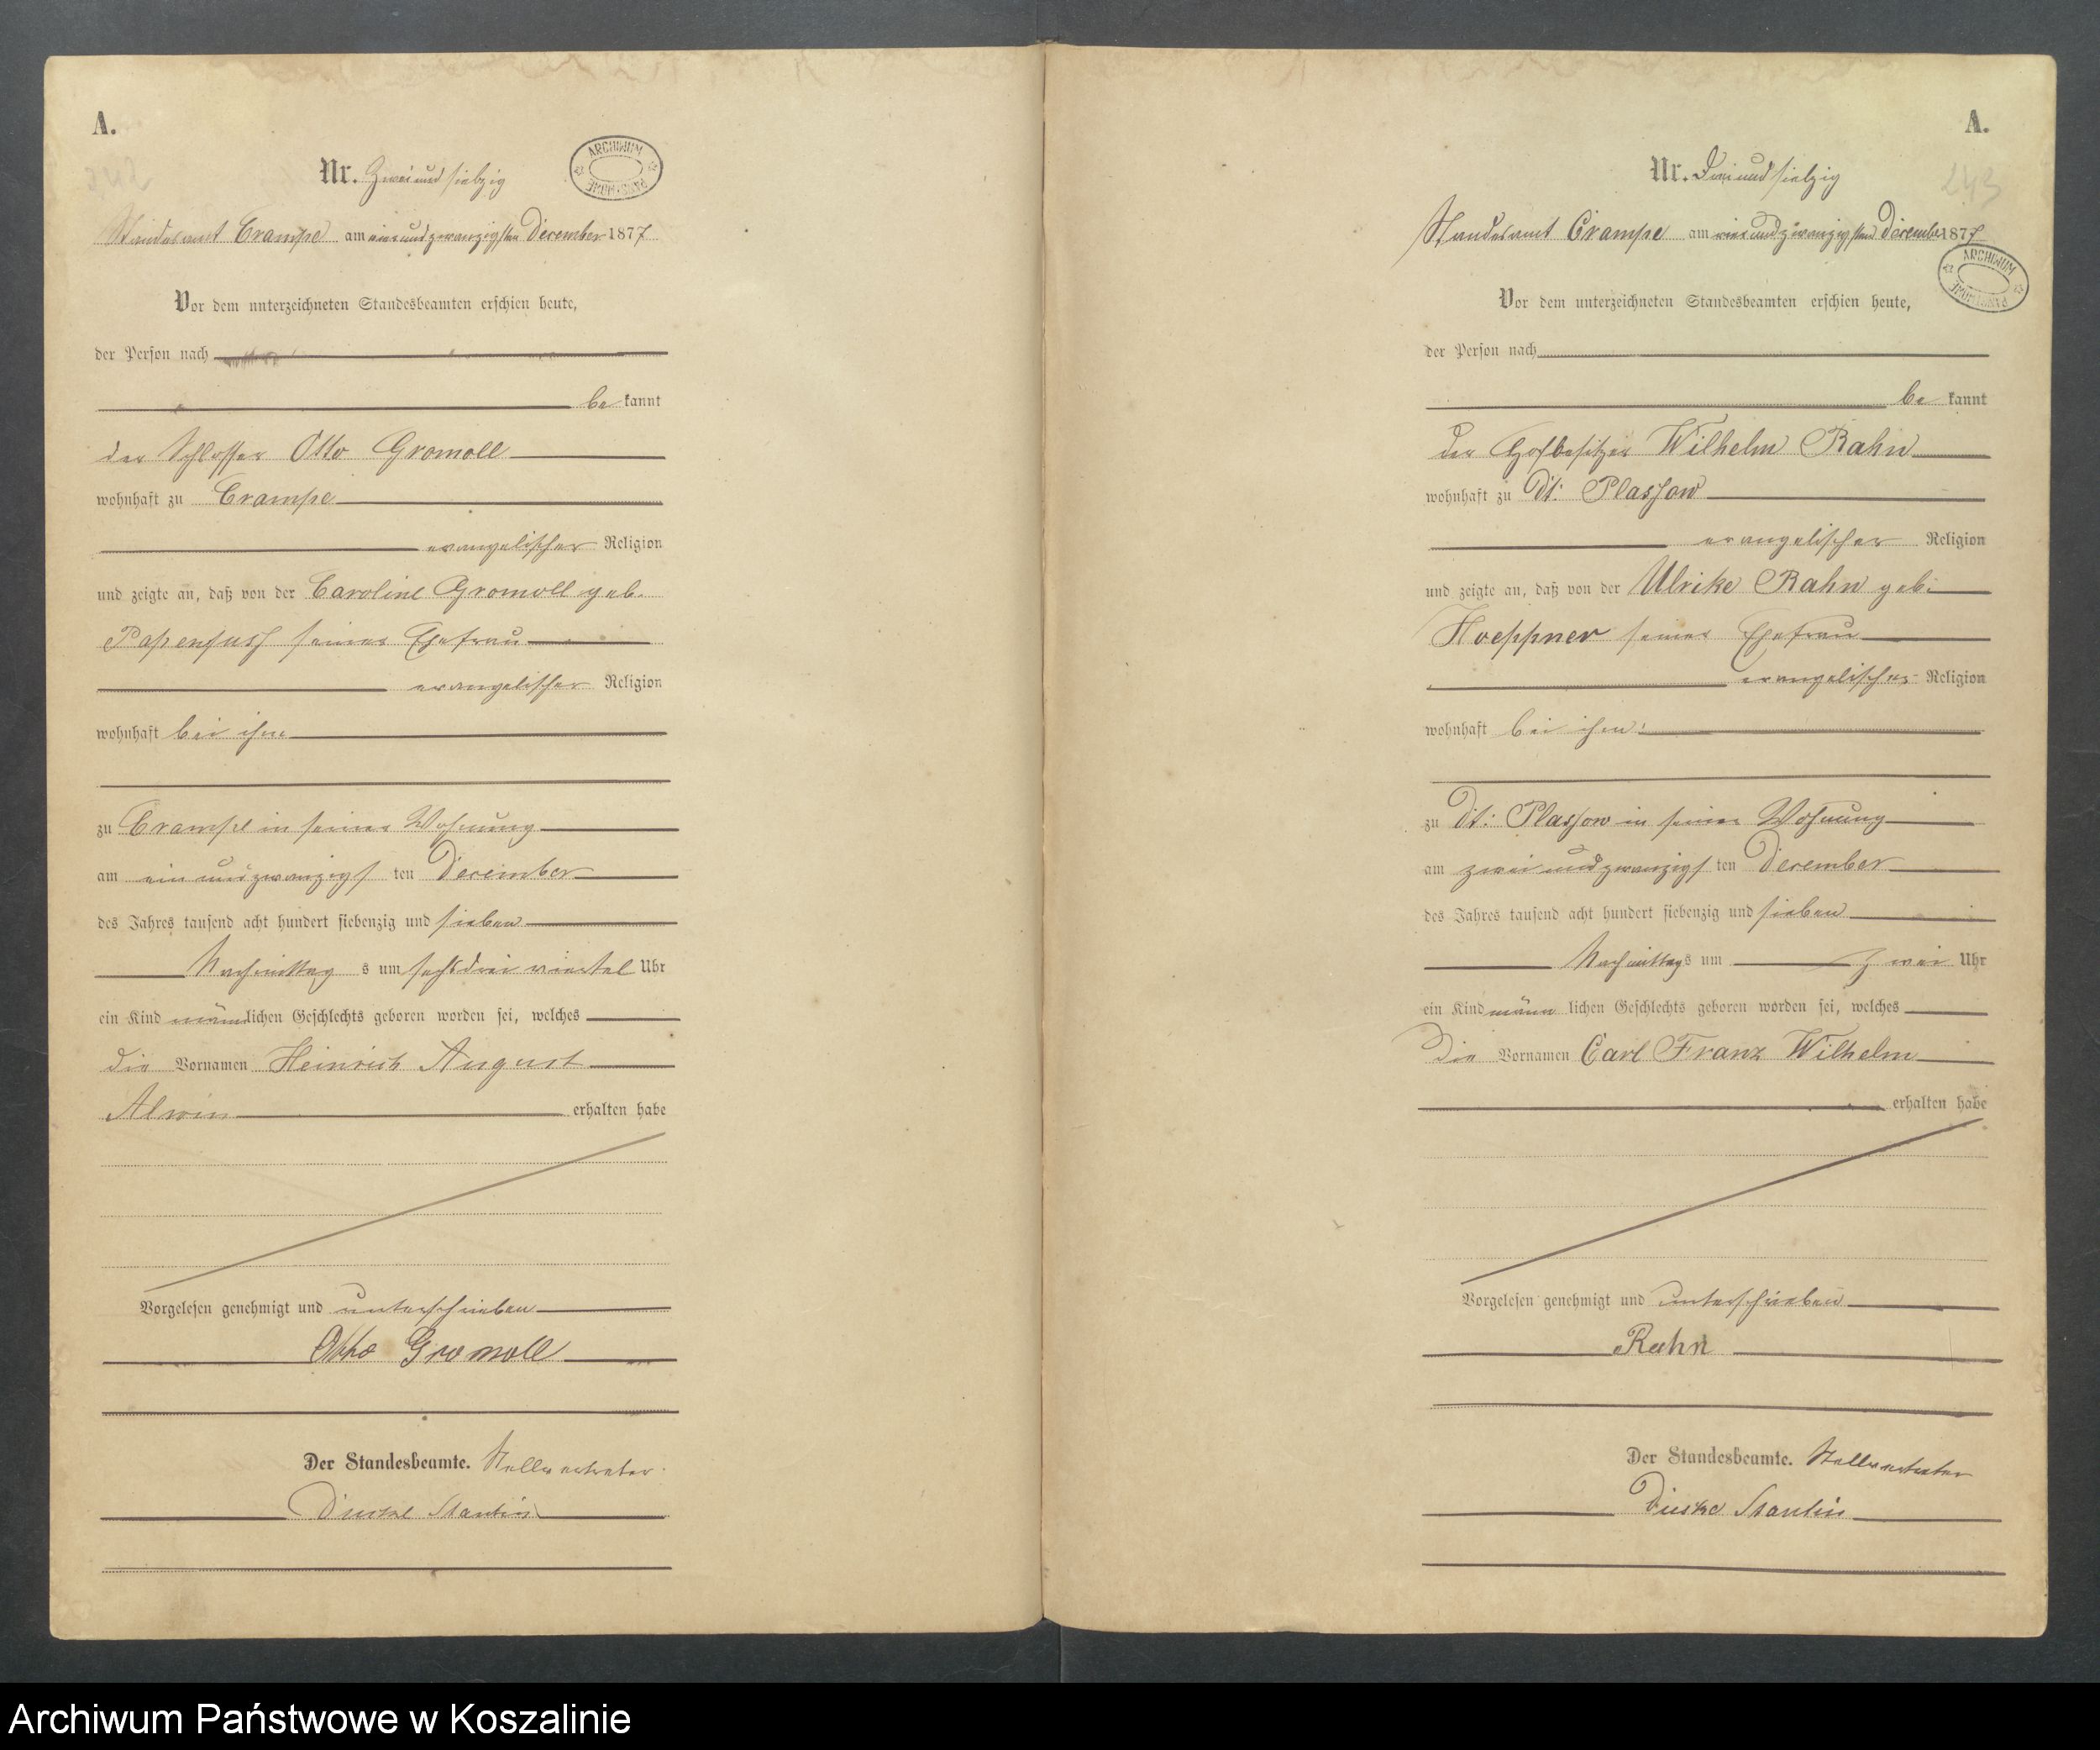 A.
242
Nr. Zwei und siebzig
ARCHIWUM PAŃSTWOWE
Standesamt Crampe am vier und zwanzigsten December 1877
Vor dem unterzeichneten Standesbeamten erschien heute,
der Person nach
be kannt
der Schlosser Otto Gromoll
wohnhaft zu Crampe
evangelischer Religion
und zeigte an, daß von der Caroline Gromoll geb.
Papenfuss seiner Ehefrau
evangelischer Religion
wohnhaft bei ihm
zu Crampe in seiner Wohnung
am ein und zwanzigs ten December
des Jahres tausend acht hundert siebenzig und sieben
Nachmittag s um sechs drei viertel Uhr
ein Kind männ lichen Geschlechts geboren worden sei, welches
die Vornamen Heinrich August
Alwin erhalten habe
Vorgelesen genehmigt und unterschrieben
Otto Gromoll
Der Standesbeamte. Stellvertreter
A.
243
Nr. Drei und siebzig
Standesamt Crampe am vier und zwanzigsten December 1877
ARCHIWUM PAŃSTWOWE
Vor dem unterzeichneten Standesbeamten erschien heute,
der Person nach
be kannt
der Hofbesitzer Wilhelm Rahn
wohnhaft zu Dt: Plassow
evangelischer Religion
und zeigte an, daß von der Ulrike Rahn geb:
Hoeppner seiner Ehefrau
evangelischer Religion
wohnhaft bei ihm:
zu Dt: Plassow in seiner Wohnung
am zwei und zwanzigs ten December
des Jahres tausend acht hundert siebenzig und sieben
Nachmittags um zwei Uhr
ein Kind männ lichen Geschlechts geboren worden sei, welches
die Vornamen Carl Franz Wilhelm
erhalten habe
Vorgelesen genehmigt und unterschrieben
Rahn
Der Standesbeamte. Stellvertreter
Archiwum Państwowe w Koszalinie